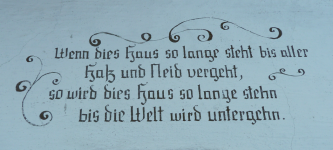 Wenn dies Haus so lange steht bis aller
Haß und Neid vergeht,
so wird dies Haus so lange stehn
bis die Welt wird untergehn.